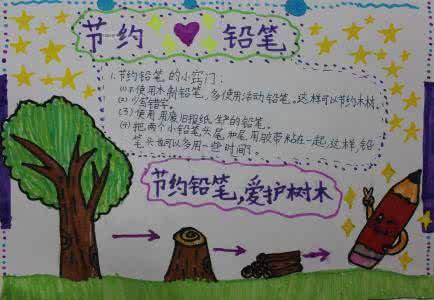 节约 铅笔
1.节约铅笔的小窍门:
(1)不使用木制铅笔,多使用活动铅笔。这样可以节约木材。
(2)少写错字。
(3)使用用废旧报纸生产的铅笔。
(4)把两个小铅笔头尾和尾用胶带粘在一起,这样,铅
笔头也可以多用一些时间。
节约铅笔,爱护树木